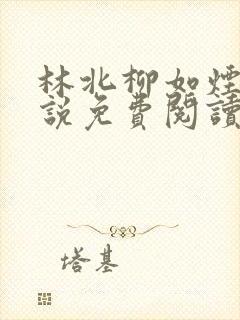 林北柳如煙
說免費閱讀
塔基